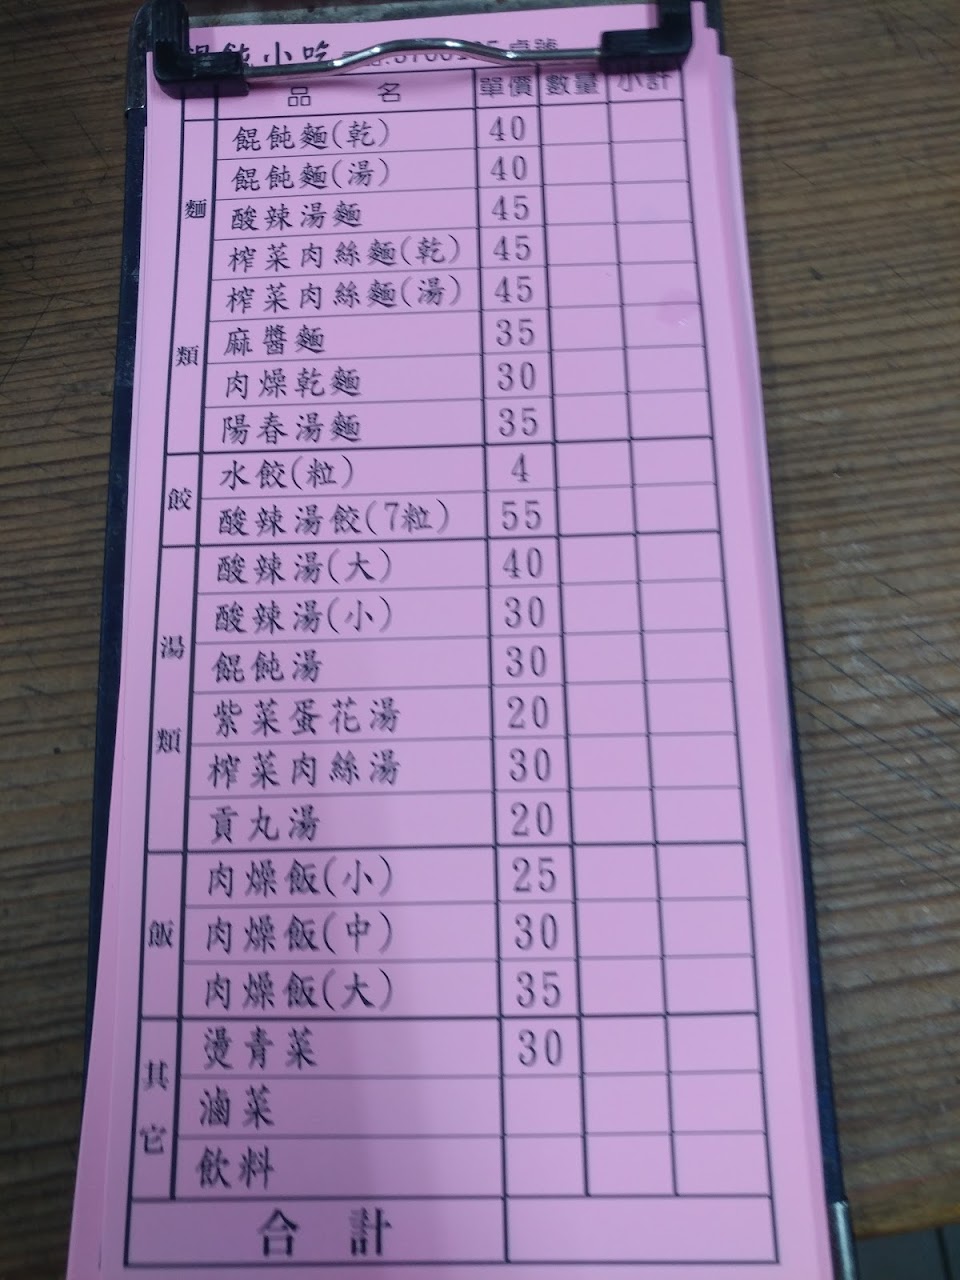 餛飩小吃
品 名 單價 數量 小計
麵類
餛飩麵(乾) 40
餛飩麵(湯) 40
酸辣湯麵 45
榨菜肉絲麵(乾) 45
榨菜肉絲麵(湯) 45
麻醬麵 35
肉燥乾麵 30
陽春湯麵 35
餃
水餃(粒) 4
酸辣湯餃(7粒) 55
湯類
酸辣湯(大) 40
酸辣湯(小) 30
餛飩湯 30
紫菜蛋花湯 20
榨菜肉絲湯 30
貢丸湯 20
飯
肉燥飯(小) 25
肉燥飯(中) 30
肉燥飯(大) 35
其它
燙青菜 30
滷菜
飲料
合計